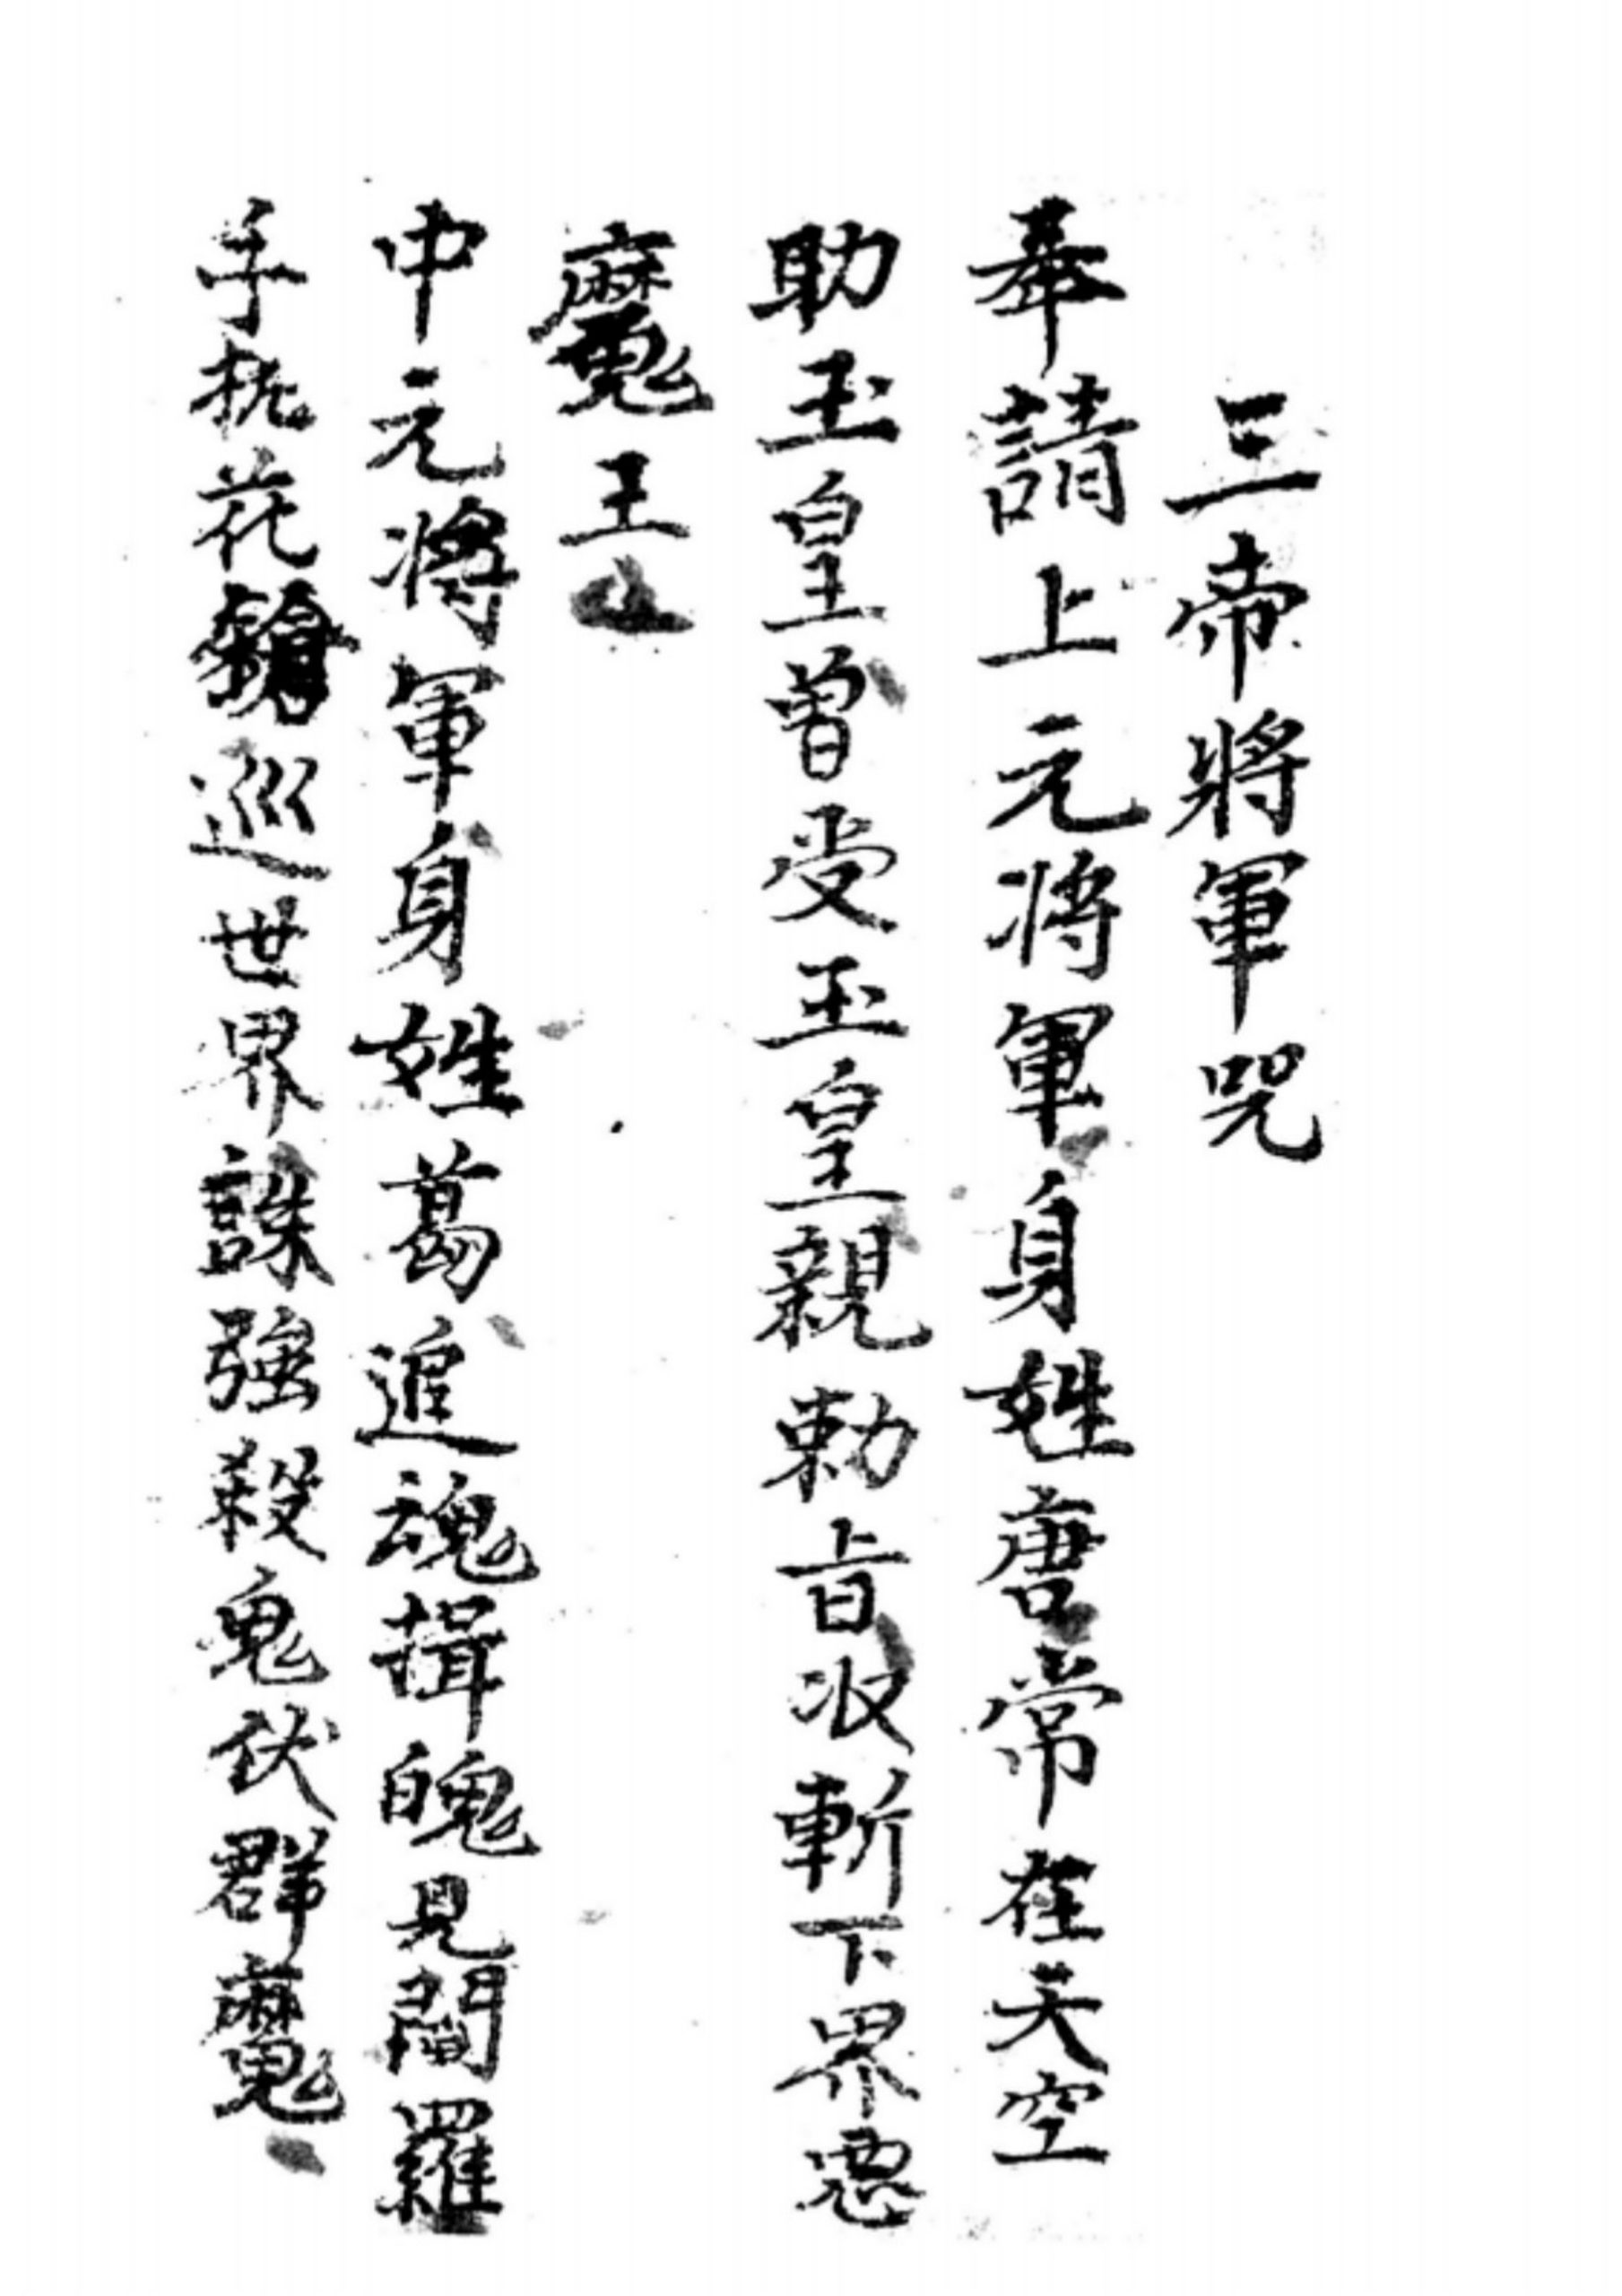 三帝將軍咒
奉請上元将軍身姓唐常在天空
助玉皇曾受玉皇親勅旨收斬下界惡
魔王
中元將軍身姓葛追魂揖魄見閻羅
手执花鎗巡世界誅強殺鬼伏群魔